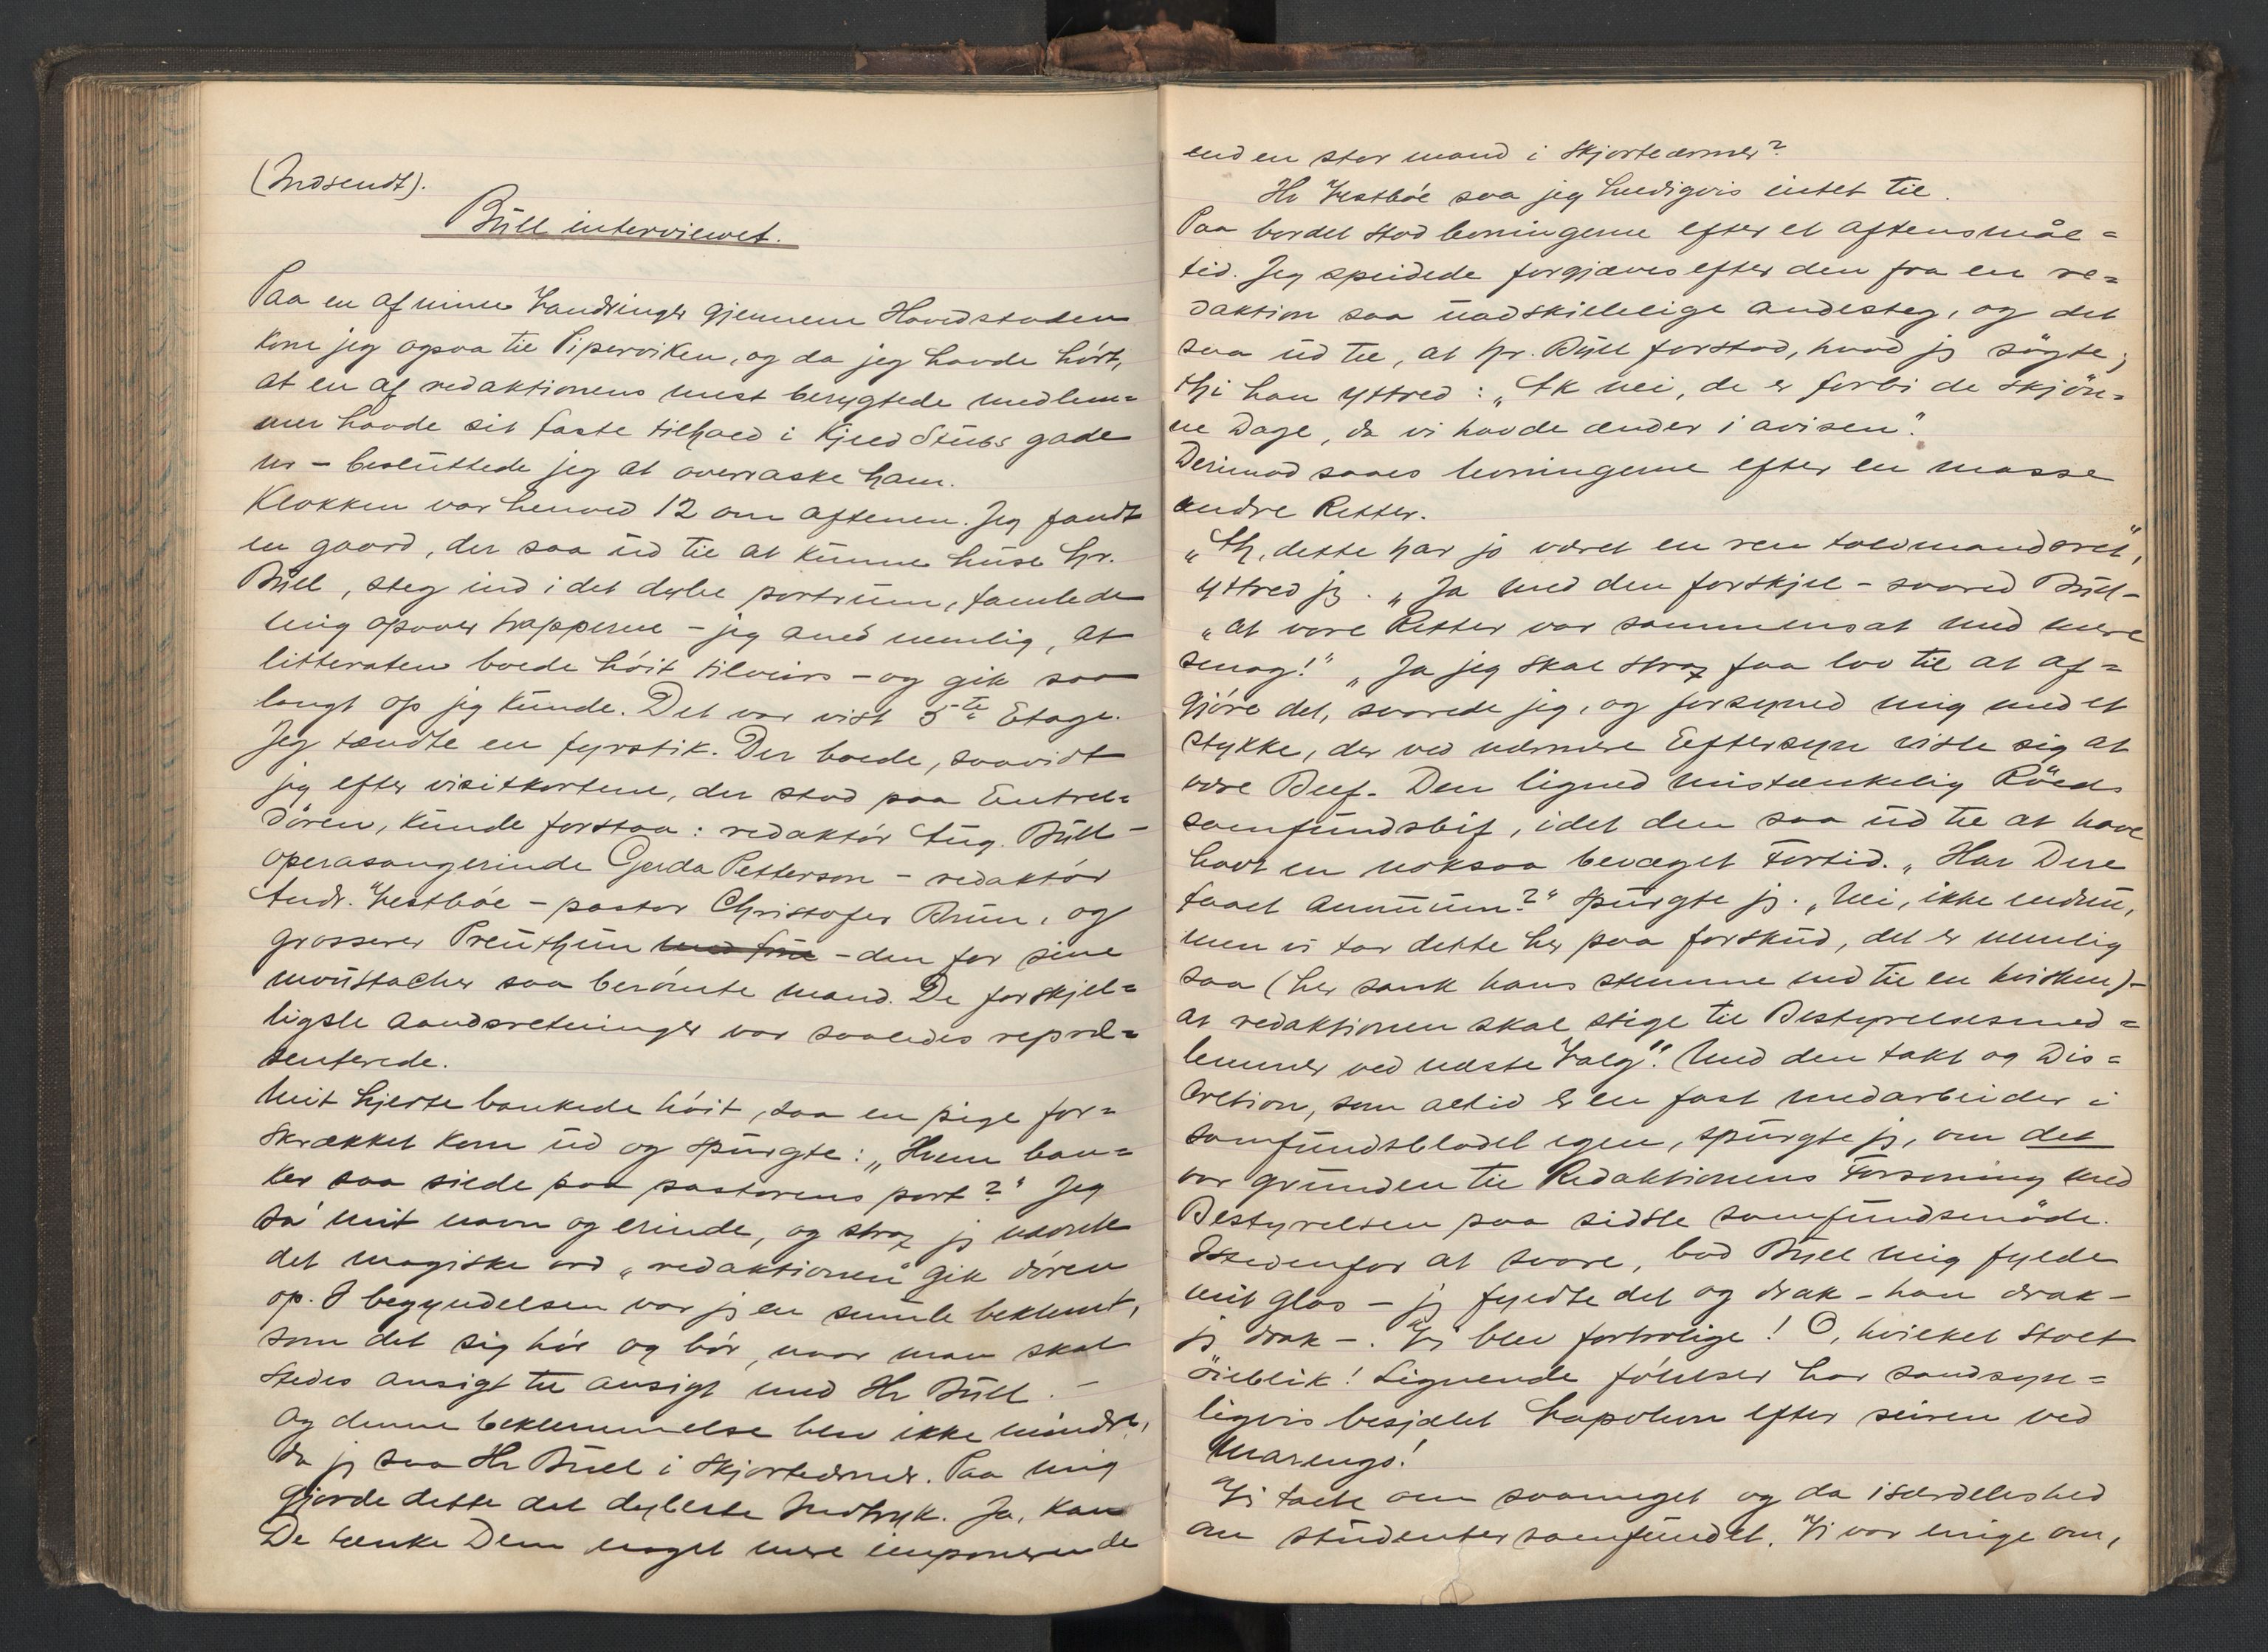 (Indsendt).
Büll interviewet.
Paa en af mine Vandringer gjennem Hovedstaden
kom jeg ogsaa til Piperviken, og da jeg havde hört,
at en af redaktionens mest berygtede medlem=
mer havde sit faste tilhold i Kjeld Stübs gade
nr – besluttede jeg at overraske ham.
Klokken var henved 12 om aftenen. Jeg fandt
en gaard, der saa üd til at kunne hüse hr.
Büll, steg ind i det dybe portrüm, famlede
mig opover trapperne – jeg aned nemlig, at
litteraten boede höit tilveirs – og gik saa
langt op jeg künde. Det var vist 5te Etage.
Jeg tændte en fyrstik. Der boede, saavidt
jeg efter visitkortene, der stod paa Entree=
dören, künde forstaa: redaktör Aug. Büll –
operasangerinde Gerda Petterson – redaktör
Andr. Vestböe – pastor Christofer Brün, og
grosserer Preüthün med sine – den for sine
moüstacher saa berömte mand. De forskjel=
ligste aandsretninger var saaledes repræ=
senterede.
Mit hjerte bankede höit, saa en pige for=
skrækket kom üd og spürgte: „Hvem ban=
ker saa silde paa pastorens port?" Jeg
sa' mit navn og erinde, og strax jg nævnte
det magiske ord „redaktionen" gik dören
op. I begyndelsen var jg en smule beklemt,
som det sig hör og bör, naar man skal
stedes ansigt til ansigt med Hr Büll. –
Og denne beklemmelse blev ikke mindre,
da jg saa Hr Büll i Skjorteærmer. Paa mig
gjorde dette det dybeste Indtryk. Ja, kan
De tænke Dem noget mere imponerende
end en stor mand i Skjorteærmer?
Hr Vestböe saa jeg heldigvis intet til.
Paa bordet stod levningerne efter et aftensmål=
tid. Jeg speidede forgjæves efter den fra en re=
daktion saa üadskillelige andesteg, og det
saa üd til, at hr. Büll forstod, hvad jg sögte;
thi han yttred: „Ak nei, de er forbi de skjön=
ne Dage, da vi havde ænder i avisen".
Derimod saaes levningerne efter en masse
andre Retter.
„Ah, dette har jo været en ren tolvmandsret",
yttred jg. „Ja med den forskjel – svared Büll –
„at vore Retter var sammensat med mere
smag!" „Ja jeg skal strax faa lov til at af=
gjöre det, svarede jeg, og forsyned mig med et
stykke, der ved nærmere Eftersyn viste sig at
være Beef. Den ligned mistænkelig Röeds
samfündsbif, idet den saa üd til at have
havt en noksaa bevæget Fortid. „Har Dere
faaet annüum?" spürgte jg. „Nei, ikke endnü,
men vi tar dette her paa forskud, det er nemlig
saa (her sank hans stemme ned til en hvisken) –
at redaktionen skal stige til Bestyrelsesmed=
lemmer ved næste Valg". Med den takt og Dis=
cretion, som altid er en fast medarbeider i
Samfündsbladet egen, spürgte jg, om det
var gründen til Redaktionens Forsoning med
Bestyrelsen paa sidste samfündsmöde.
Istedenfor at svare, bød Büll mig fylde
mit glas – jg fyldte det og drak – han drak –
jg drak –. Vi blev fortrolige! O, hvilket stolt
öieblik! Lignende fölelser har sandsyn=
ligvis besjælet Napoleon efter seiren ved
Marengo!
Vi talte om saameget og da isærdeleshed
om stüdentersamfündet. Vi var enige om,